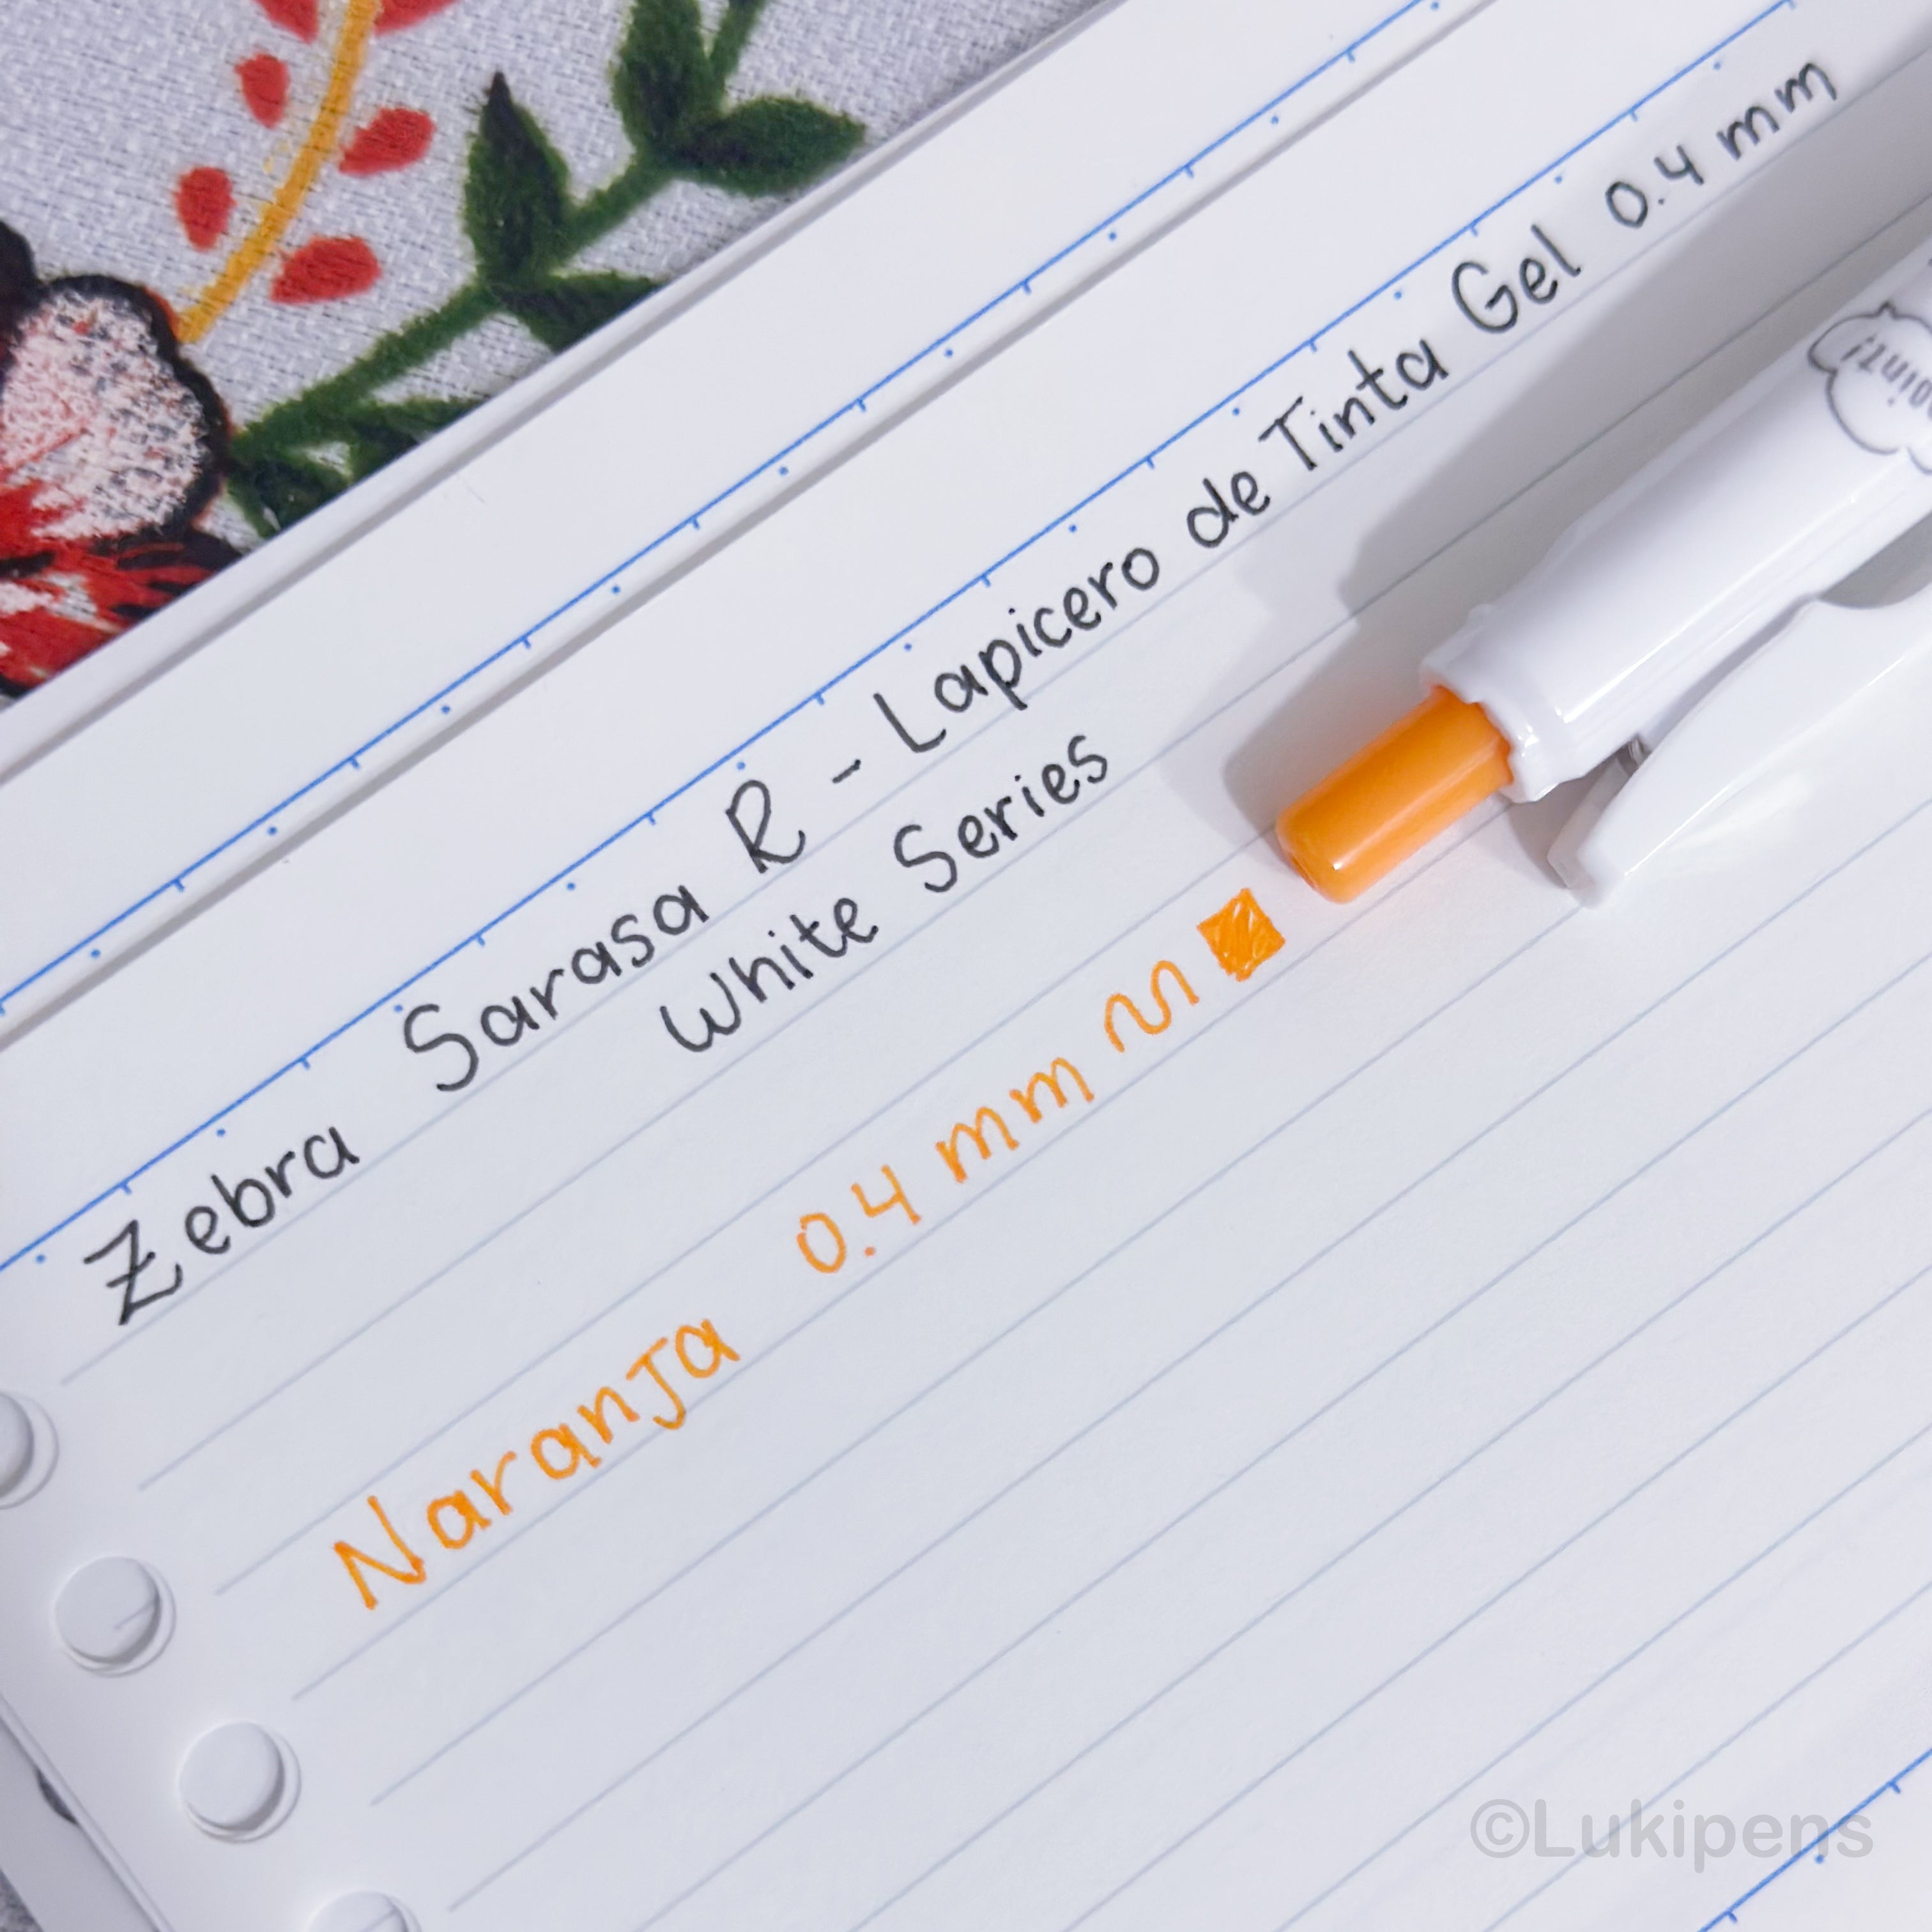 Zebra Sarasa R - Lapicero de Tinta Gel 0.4 mm
White Series
Naranja 0.4 mm
©Lukipens